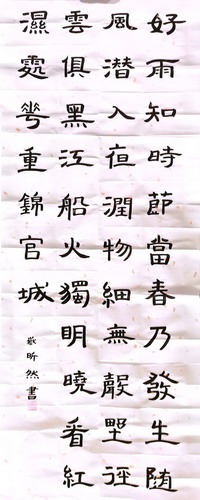 好雨知時節當春乃發生随
風潜入夜潤物細無聲野徑
雲俱黑江船火獨明曉看紅
濕處花重錦官城
昕然書